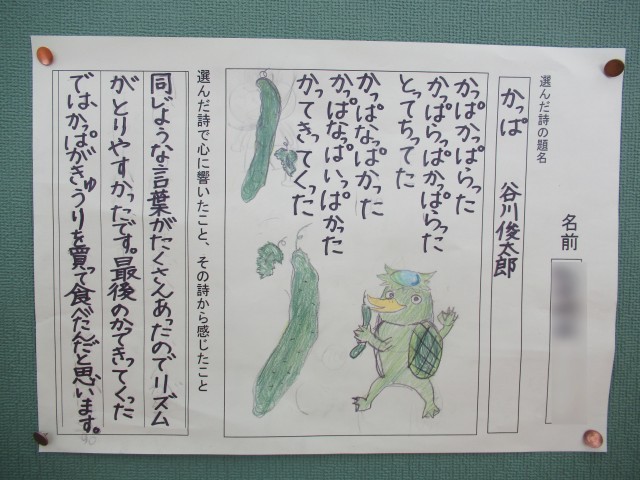 名前
選んだ詩の題名
かっぱ 谷川俊太郎
かっぱかっぱらった
かっぱらっぱかっぱらった
とってちってた
かっぱなっぱかった
かっぱなっぱいっぱかった
かってきってくった
選んだ詩で心に響いたこと、その詩から感じたこと
同じような言葉がたくさんあったのでリズム
がとりやすかったです。最後のかてきってくった
では、かっぱがきゅうりを買って食べたんだと思います。